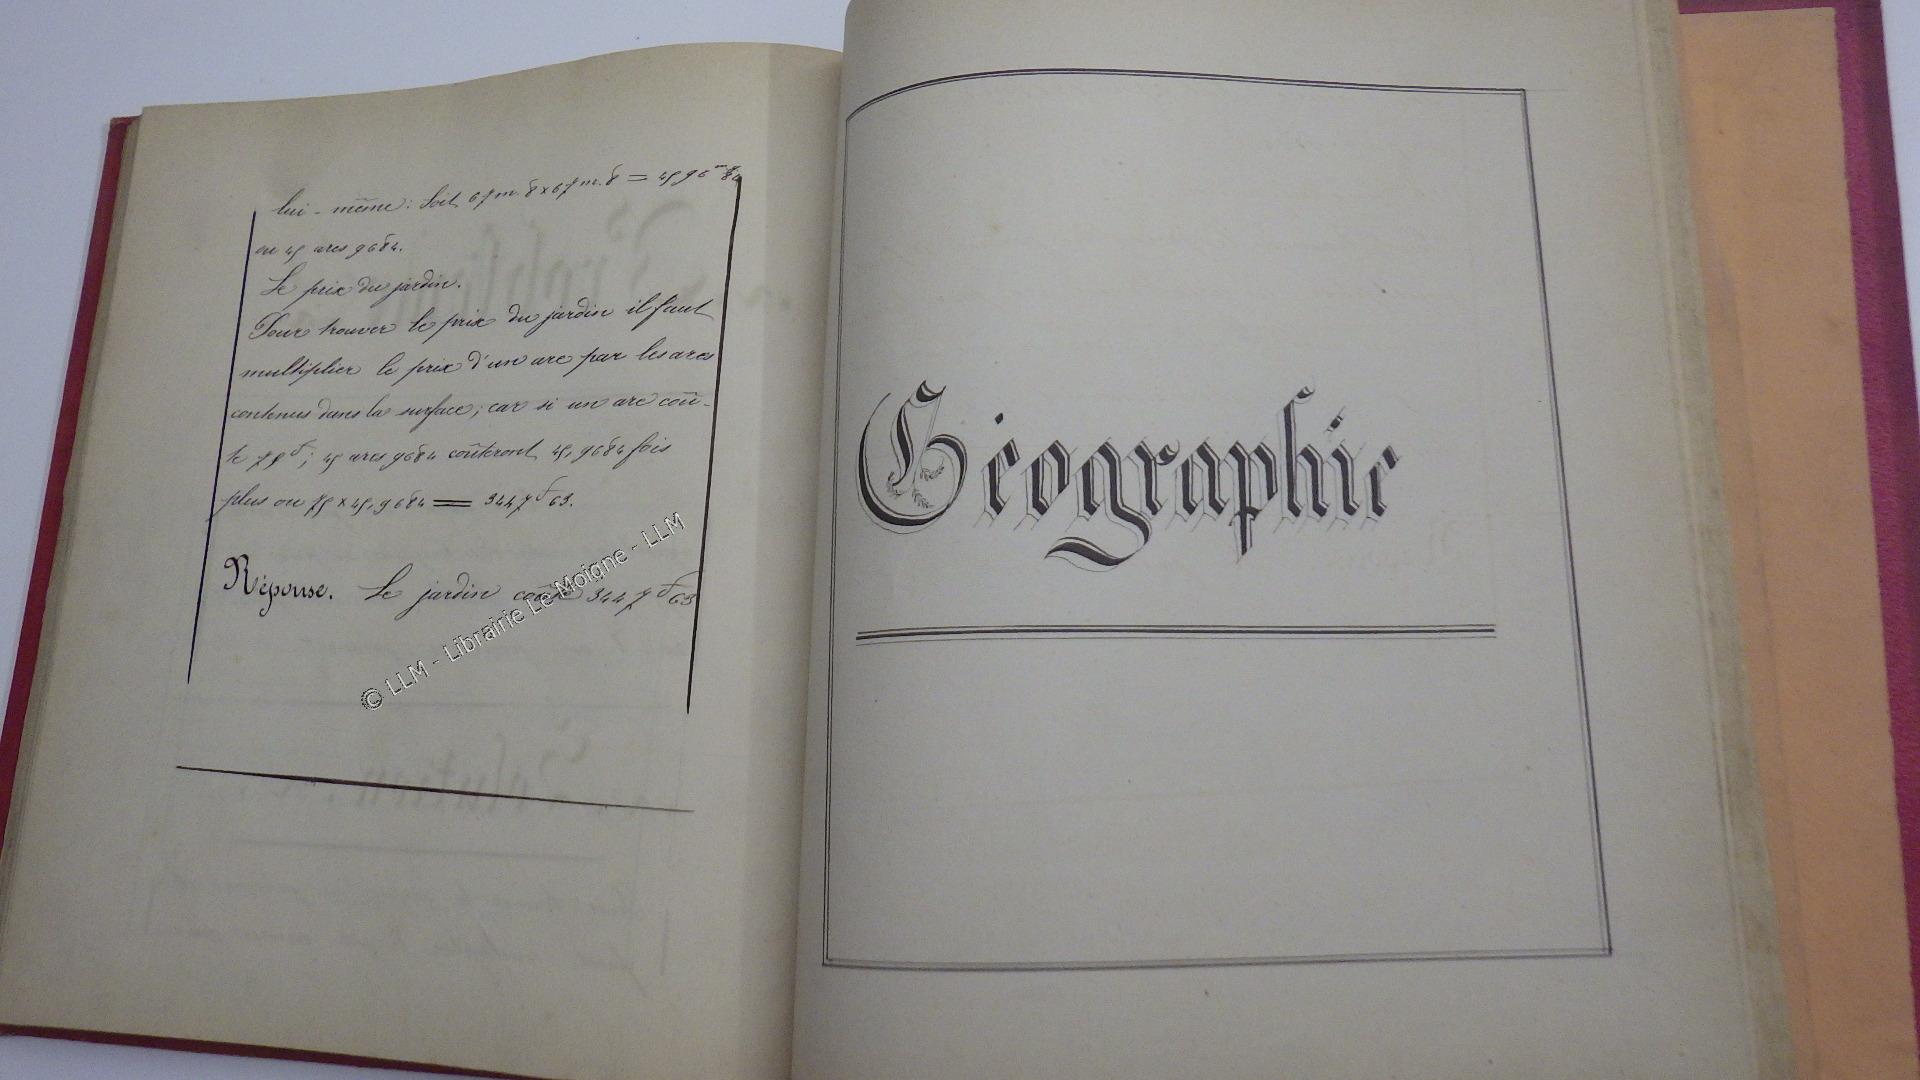 lui-même: soit 67m.8 x 67m.8 = 4596m84
ou 45 ares 9684.
Le prix du jardin.
Pour trouver le prix du jardin il faut
multiplier le prix d'un are par les ares
contenus dans la surface; car si un are coû-
te 75f; 45 ares 9684 coûteront 45,9684 fois
plus ou 75 x 45,9684 = 3447f63.
Réponse. Le jardin coûte 3447f63
© LLM - Librairie Le Moigne - LLM
Géographie